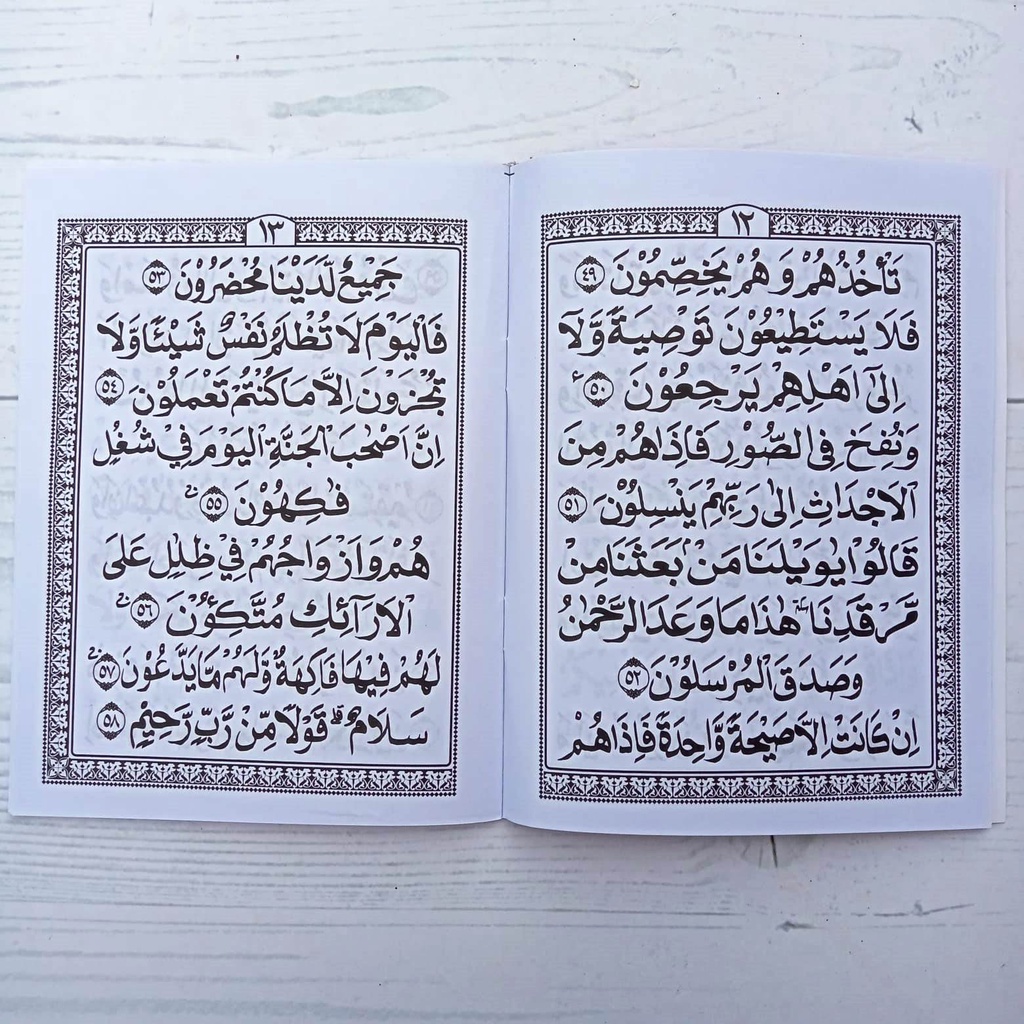 ١٢
تَأْخُذُهُمْ وَهُمْ يَخِصِّمُوْنَ ﴿٤٩﴾
فَلَا يَسْتَطِيْعُوْنَ تَوْصِيَةً وَّلَآ
اِلٰٓى اَهْلِهِمْ يَرْجِعُوْنَ ﴿٥٠﴾ ع
وَنُفِخَ فِى الصُّوْرِ فَاِذَا هُمْ مِنَ
الْاَجْدَاثِ اِلٰى رَبِّهِمْ يَنْسِلُوْنَ ﴿٥١﴾
قَالُوْا يٰوَيْلَنَا مَنْۢ بَعَثَنَا مِنْ
مَّرْقَدِنَا ۘ هٰذَا مَا وَعَدَ الرَّحْمٰنُ
وَصَدَقَ الْمُرْسَلُوْنَ ﴿٥٢﴾
اِنْ كَانَتْ اِلَّا صَيْحَةً وَّاحِدَةً فَاِذَا هُمْ
١٣
جَمِيْعٌ لَّدَيْنَا مُحْضَرُوْنَ ﴿٥٣﴾
فَالْيَوْمَ لَا تُظْلَمُ نَفْسٌ شَيْـًٔا وَّلَا
تُجْزَوْنَ اِلَّا مَا كُنْتُمْ تَعْمَلُوْنَ ﴿٥٤﴾
اِنَّ اَصْحٰبَ الْجَنَّةِ الْيَوْمَ فِيْ شُغُلٍ
فٰكِهُوْنَ ﴿٥٥﴾ ۚ
هُمْ وَاَزْوَاجُهُمْ فِيْ ظِلٰلٍ عَلَى
الْاَرَآئِكِ مُتَّكِـُٔوْنَ ﴿٥٦﴾ ۚ
لَهُمْ فِيْهَا فَاكِهَةٌ وَّلَهُمْ مَّا يَدَّعُوْنَ ﴿٥٧﴾ ۚ
سَلَامٌ ۗ قَوْلًا مِّنْ رَّبٍّ رَّحِيْمٍ ﴿٥٨﴾